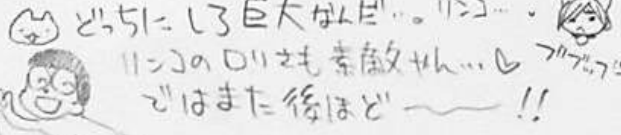 どっちにしろ巨大なんだ…。リンゴ…。
リンゴのロリさも素敵やん…♡
ブツブツ
ではまた後ほど〜〜!!